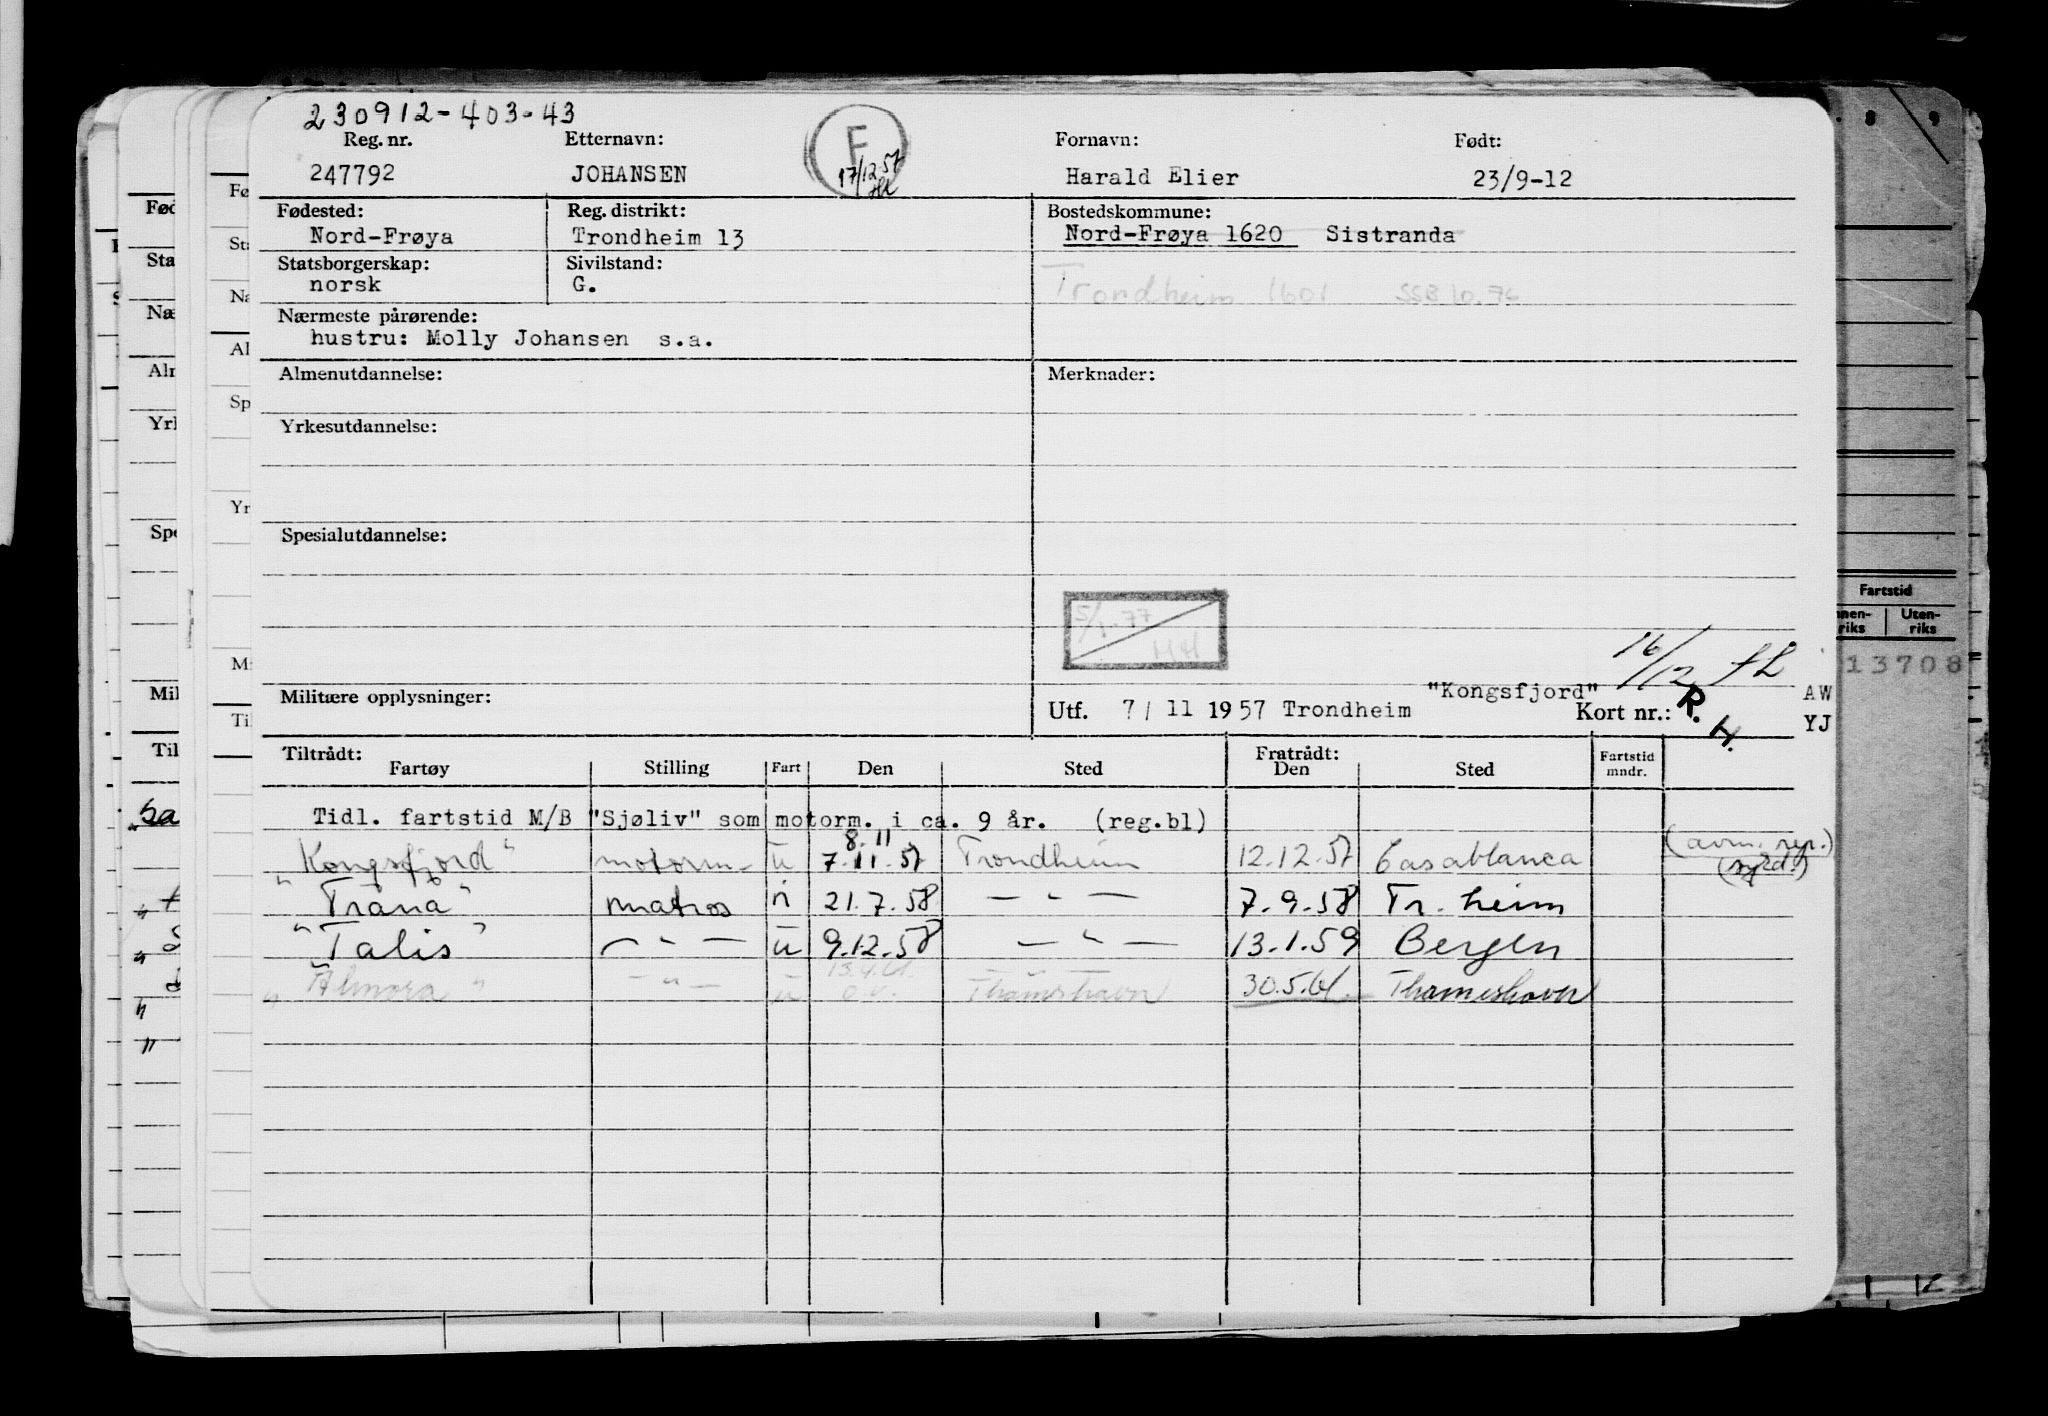 230912-403-43
Reg. nr. Etternavn: Fornavn: Født:
247792 JOHANSEN F 17/12 57 Harald Elier 23/9-12
Fødested: Reg. distrikt: Bostedskommune:
Nord-Frøya Trondheim 13 Nord-Frøya 1620 Sistranda
Statsborgerskap: Sivilstand:
norsk G. Trondheim 1601 SSB 10.76
Nærmeste pårørende:
hustru: Molly Johansen s.a.
Almenutdannelse: Merknader:
Yrkesutdannelse:
Spesialutdannelse:
5/1-77
HH
16/12
Militære opplysninger: "Kongsfjord" AW
Utf. 7/11 1957 Trondheim Kort nr.: R. H. YJ
Tiltrådt: Fratrådt:
Fartøy Stilling Fart Den Sted Den Sted Fartstid mndr.
Tidl. fartstid M/B "Sjøliv" som motorm. i ca. 9 år. (reg.bl)
8.11
"Kongsfjord" motorm. u 7.11.57 Trondheim 12.12.57 Casablanca (avm. rep.)
"Trana" matros n 21.7.58 — " — 7.9.58 Tr.heim
"Talis" — " — u 9.12.58 — " — 13.1.59 Bergen
13.4.61.
"Almora" — " — u o.v. Thamshavn 30.5.61. Thamshavn
Fartstid
Innen-riks Uten-riks
13708